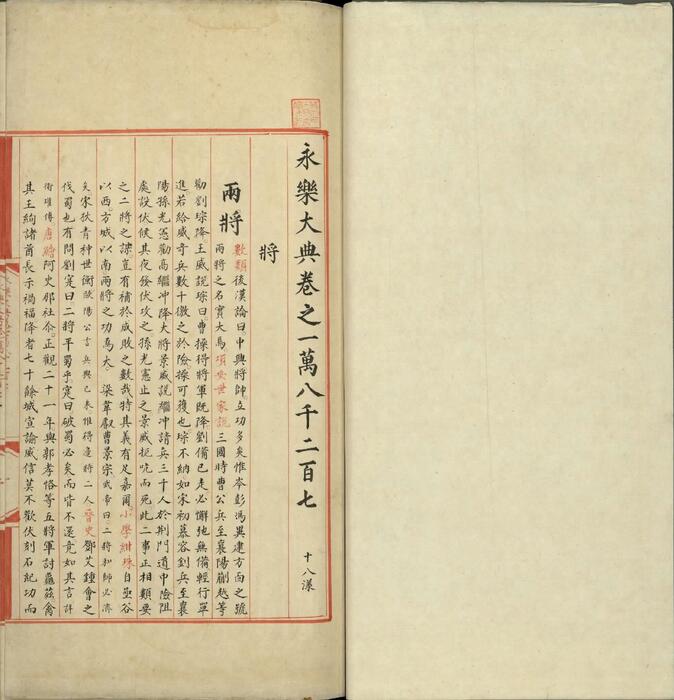 永樂大典卷之一萬八千二百七
十八漾
將
兩將
數類後漢論曰中興將帥立功多矣惟岑彭馮異建方面之號
兩將之名實大焉項安世家說三國時曹公兵至襄陽蒯越等
勸劉琮降王威說琮曰曹操得將軍既降劉備已走必懈弛無備輕行單
進若給威奇兵數千徼之於險操可獲也琮不納如宋初慕容釗兵至襄
陽孫光憲勸高繼沖降大將景威說繼沖請兵三千人於荆門道中險阻
處設伏候其夜發伏攻之孫光憲止之景威扼吭而死此二事正相類要
之二將之謀豈有補於成敗之數哉特其義有足嘉爾小學紺珠自亟谷
以西方城以南兩將之功為大梁韋叡曹景宗武帝曰二將和師必濟
矣宋狄青种世衡歐陽公言兵興已來惟得邊將二人晉史鄧艾鍾會之
伐蜀也有問劉寔曰二將平蜀乎寔曰破蜀必矣而皆不還竟如其言許
衛瓘傳唐繪阿史那社尒正觀二十一年與郭孝恪等五將軍討龜茲禽
其王絢諸酋長示禍福降者七十餘城宣諭威信莫不歡伏刻石紀功而